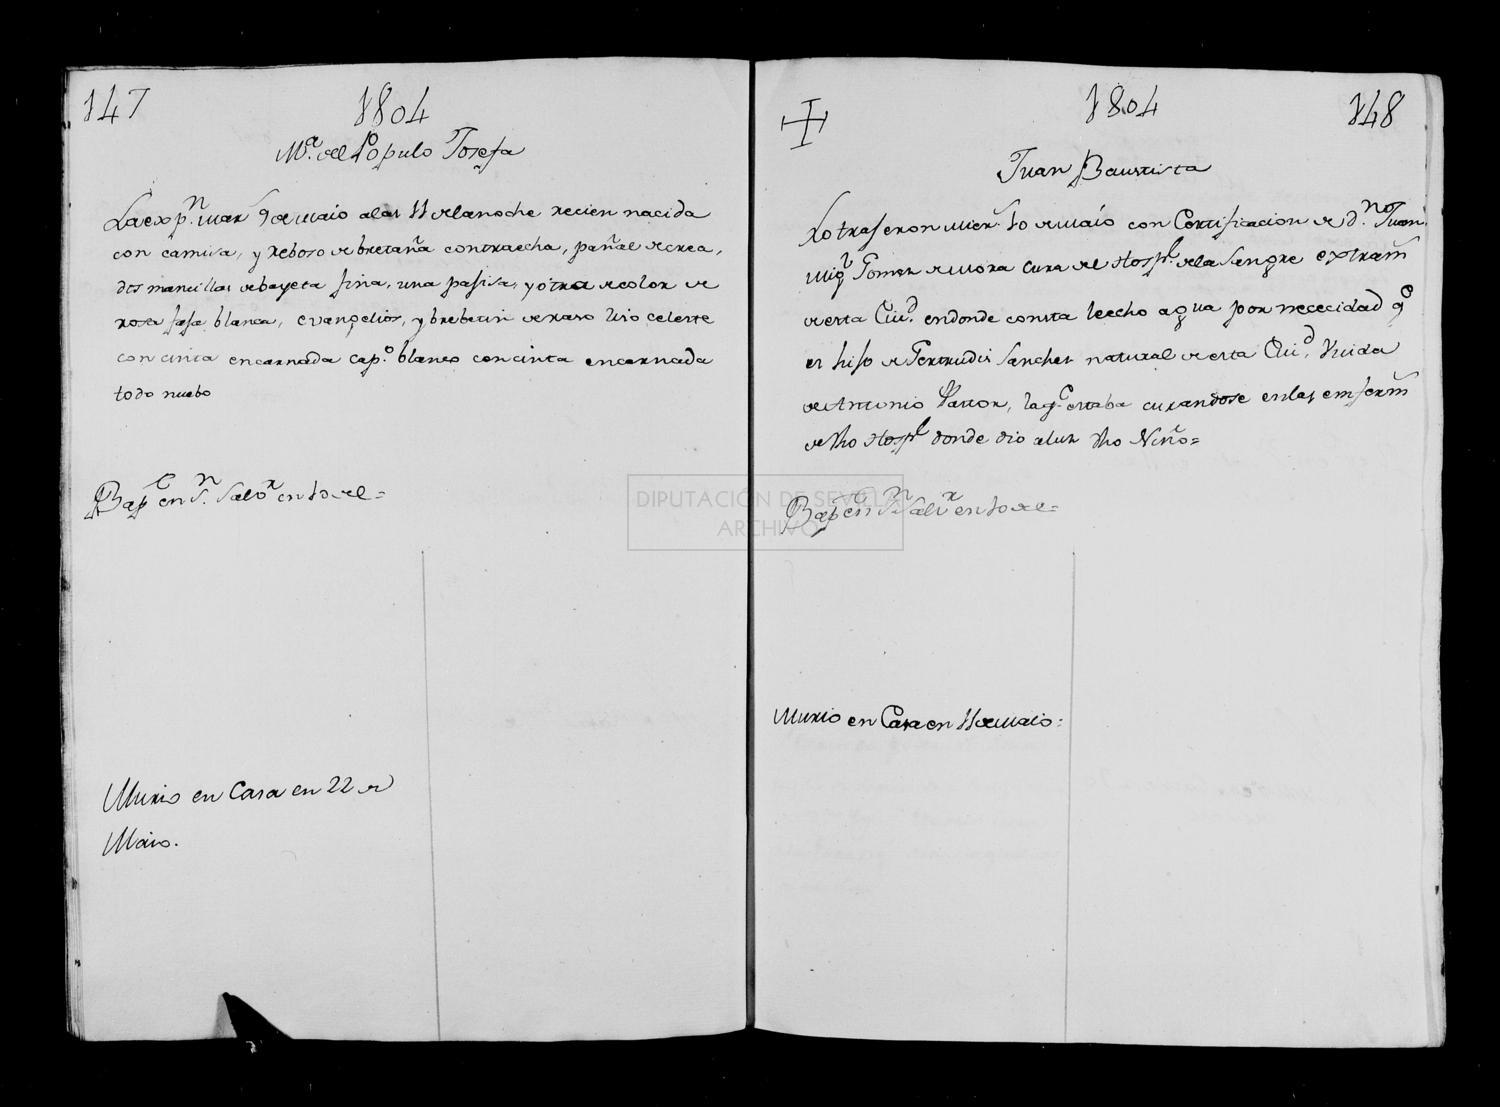 147
1804
Mª. del Populo Josefa
La exp.n mar.s 9 de Maio a las 11 de la noche recien nacida
con camisa, y reboso de bretaña contraecha, pañal de crea,
dos mancillas de bayeta fina, una pajisa, y otra de color de
rosa faja blanca, evangelios, y brebetin de raso liso celeste
con cinta encarnada cap.o blanco con cinta encarnada
todo nuebo
Bap.e en S.n Salv.r en 10 de el =
Murio en Casa en 22 de
Maio.
1804
148
Juan Bautista
Lo trajeron Mier.s 10 de Maio con Certificacion de d.n Juan
Mig.l de Mora cura de el Hosp.l de la Sangre extram.s
de esta Ciu.d en donde consta heecho agua por nececidad q.e
es hijo de Gertrudis Sanches natural de esta Ciu.d, Viuda
de Antonio Pastor, la q.e estaba curandose en las enferm.s
de dho Hosp.l donde dio a lus dho Niño =
Bap.e en S.n Salv.r en 10 de el =
Murio en Casa en 11 de Maio =
DIPUTACIÓN DE SEVILLA
ARCHIVO